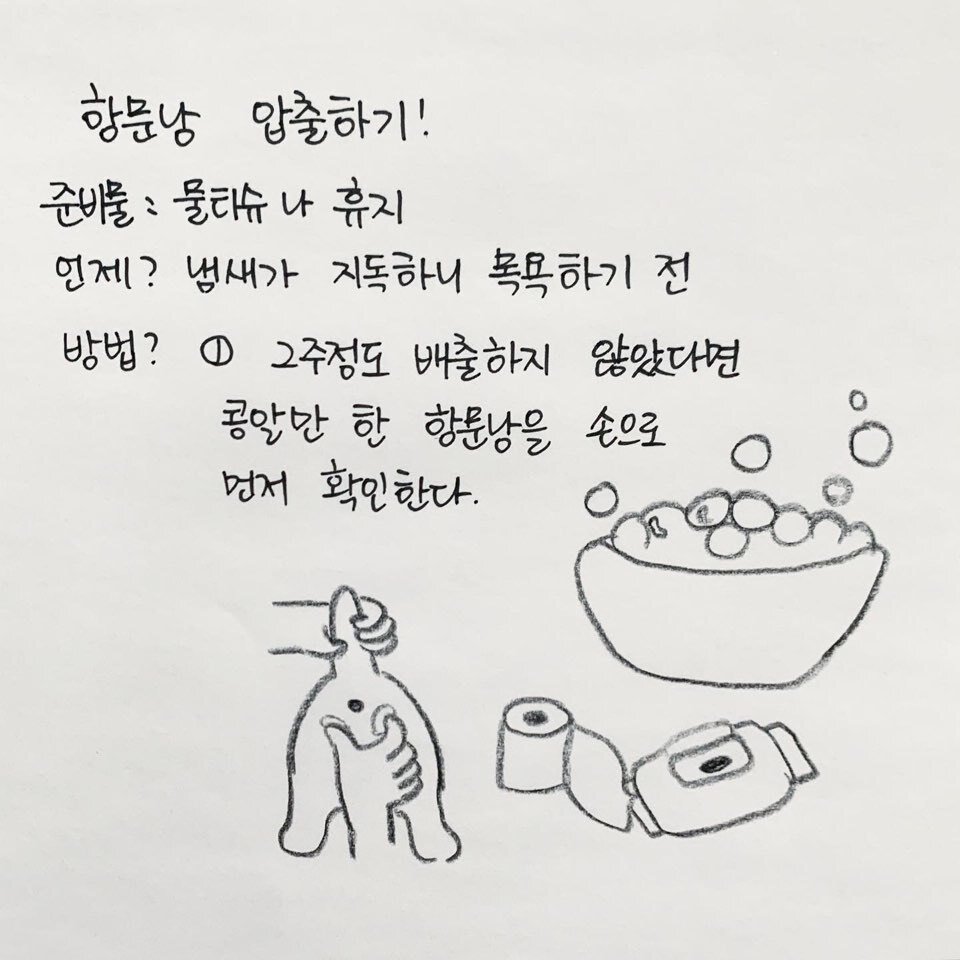 항문낭 압출하기!
준비물 : 물티슈 나 휴지
언제? 냄새가 지독하니 목욕하기 전
방법? ① 2주정도 배출하지 않았다면
콩알만 한 항문낭을 손으로
먼저 확인한다.